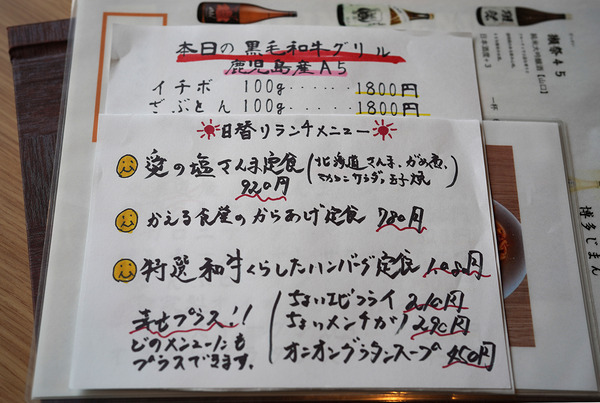 本日の黒毛和牛グリル
鹿児島産A5
イチボ 100g‥‥‥1800円
ざぶとん 100g‥‥‥1800円
日替りランチメニュー
愛の塩さんま定食(北海道さんま、がめ煮、
マカロニサラダ、玉子焼)
920円
かえる食堂のからあげ定食 780円
特選和牛くらしたハンバーグ定食
プラス!!
どのメニューにも
プラスできます。
ちょいエビフライ 210円
ちょいメンチカツ 290円
オニオングラタンスープ 450円
獺祭45
純米大吟醸酒【山口】
日本酒度+3
博多じまん